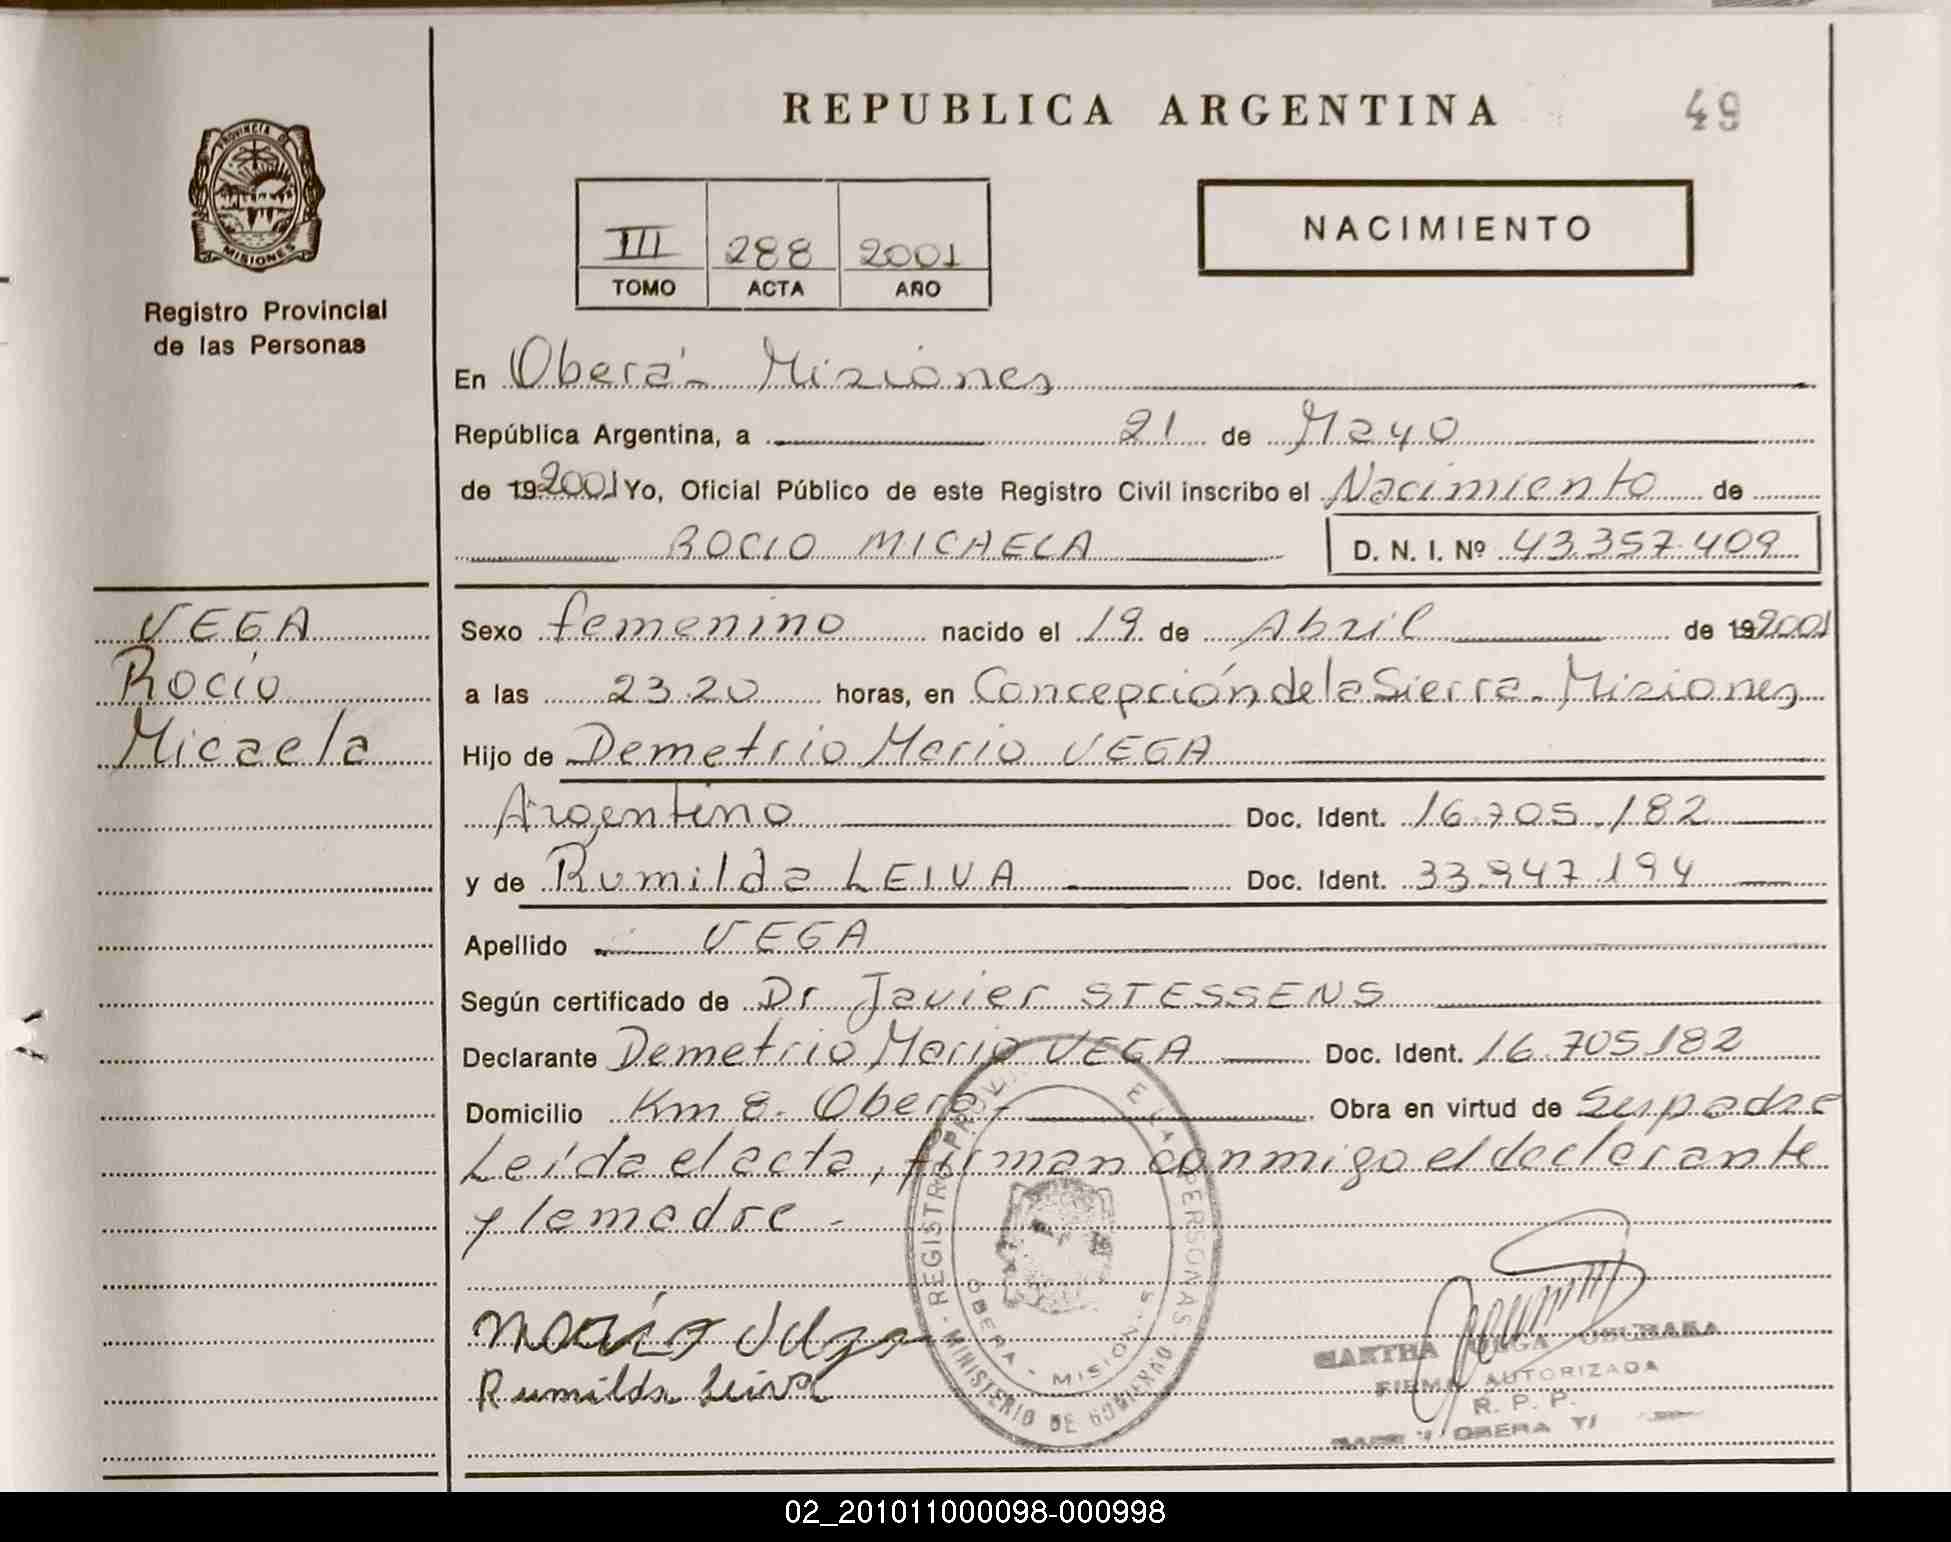 REPUBLICA ARGENTINA
49
PROVINCIA D
MISIONES
Registro Provincial
de las Personas
III 288 2001
TOMO ACTA AÑO
NACIMIENTO
En Oberá - Misiones
República Argentina, a 21 de Mayo
de 19 2001 Yo, Oficial Público de este Registro Civil inscribo el Nacimiento de
ROCIO MICAELA
D. N. I. Nº 43.357.409
VEGA
Rocío
Micaela
Sexo femenino nacido el 19 de Abril de 19 2001
a las 23.20 horas, en Concepción de la Sierra - Misiones
Hijo de Demetrio Mario VEGA
Argentino Doc. Ident. 16.705.182
y de Rumilda LEIVA Doc. Ident. 33.947.194
Apellido VEGA
Según certificado de Dr Javier STESSENS
Declarante Demetrio Mario VEGA Doc. Ident. 16.705.182
Domicilio Km 8. Oberá - Obra en virtud de Su padre
Leída el acta, firman conmigo el declarante
y la madre -
Rumilda Leiva
REGISTRO PROV E LAS PERSONAS
MINISTERIO DE GOBIERNO
OBERA - MISION S
MARTHA
FIRMA AUTORIZADA
R. P. P.
OBERA
02_201011000098-000998